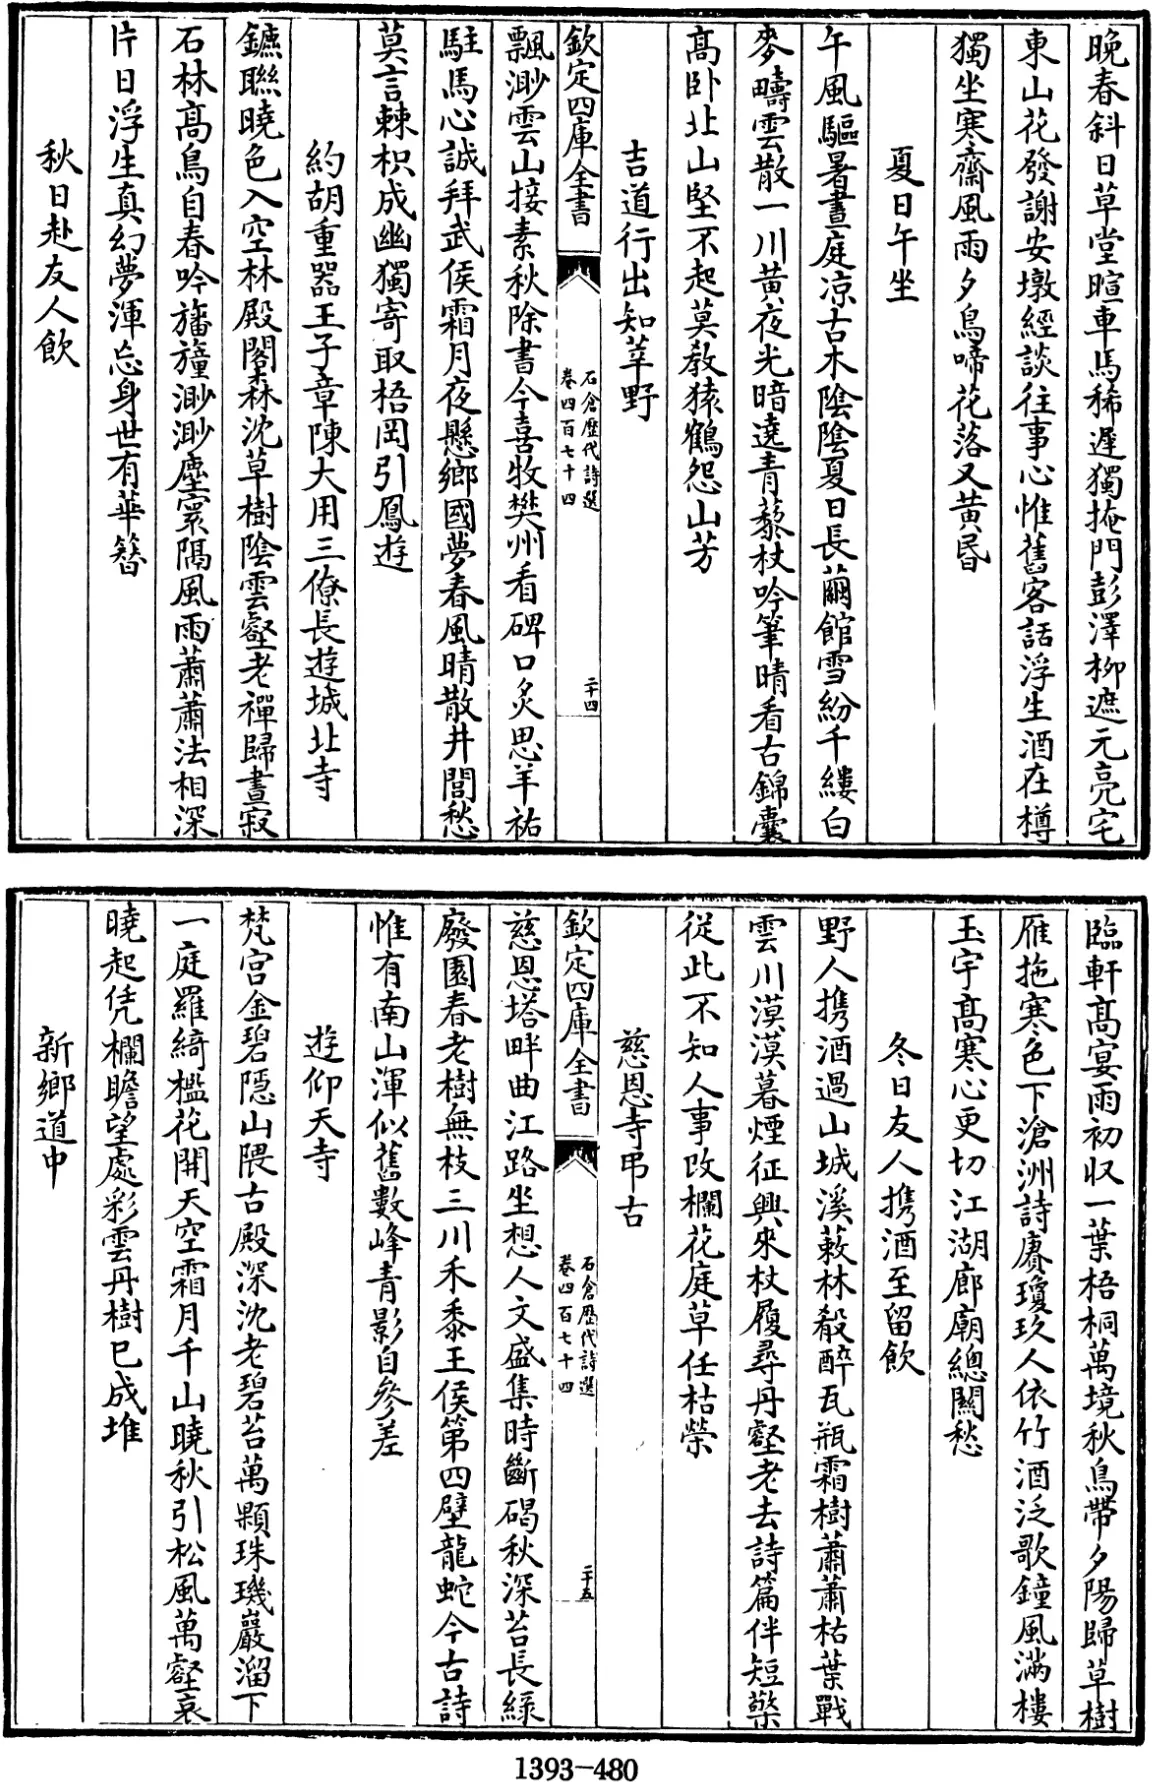 晚春斜日草堂暄車馬稀遲獨掩門彭澤柳遮元亮宅
東山花發謝安墩經談往事心惟舊客話浮生酒在樽
獨坐寒齋風雨夕鳥啼花落又黃昏
夏日午坐
午風驅暑晝庭凉古木陰陰夏日長繭館雪紛千縷白
麥疇雲散一川黃夜光暗遶青藜杖吟筆晴看古錦囊
髙卧北山堅不起莫敎猿鶴怨山芳
吉道行出知莘野
欽定四庫全書
石倉歷代詩選
卷四百七十四
二十四
飄渺雲山接素秋除書今喜牧樊州看碑口炙思羊祐
駐馬心誠拜武侯霜月夜懸鄉國夢春風晴散井閭愁
莫言棘枳成幽獨寄取梧岡引鳳遊
約胡重器王子章陳大用三僚長遊城北寺
鑣聮曉色入空林殿閣森沈草樹陰雲壑老禪歸晝寂
石林髙鳥自春吟旛旜渺渺塵寰隔風雨蕭蕭法相深
片日浮生真幻夢渾忘身世有華簪
秋日赴友人飲
臨軒髙宴雨初收一葉梧桐萬境秋鳥帶夕陽歸草樹
雁拖寒色下滄洲詩賡瓊玖人依竹酒泛歌鐘風滿樓
玉宇髙寒心更切江湖廊廟總關愁
冬日友人携酒至留飲
野人携酒過山城溪蔌林殽醉瓦瓶霜樹蕭蕭枯葉戰
雲川漠漠暮煙征興來杖履尋丹壑老去詩篇伴短檠
從此不知人事改欄花庭草任枯榮
慈恩寺弔古
欽定四庫全書
石倉歷代詩選
卷四百七十四
二十五
慈恩塔畔曲江路坐想人文盛集時斷碣秋深苔長綠
廢園春老樹無枝三川禾黍王侯第四壁龍蛇今古詩
惟有南山渾似舊數峰青影自參差
遊仰天寺
梵宮金碧隱山隈古殿深沈老碧苔萬顆珠璣巖溜下
一庭羅綺檻花開天空霜月千山曉秋引松風萬壑哀
曉起凭欄瞻望處彩雲丹樹已成堆
新鄉道中
1393-480